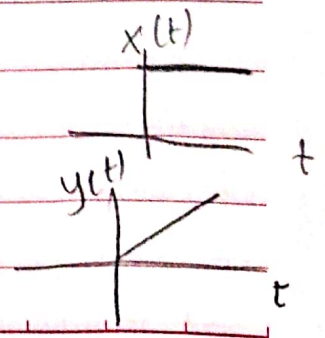 x(t)
t
y(t)
t